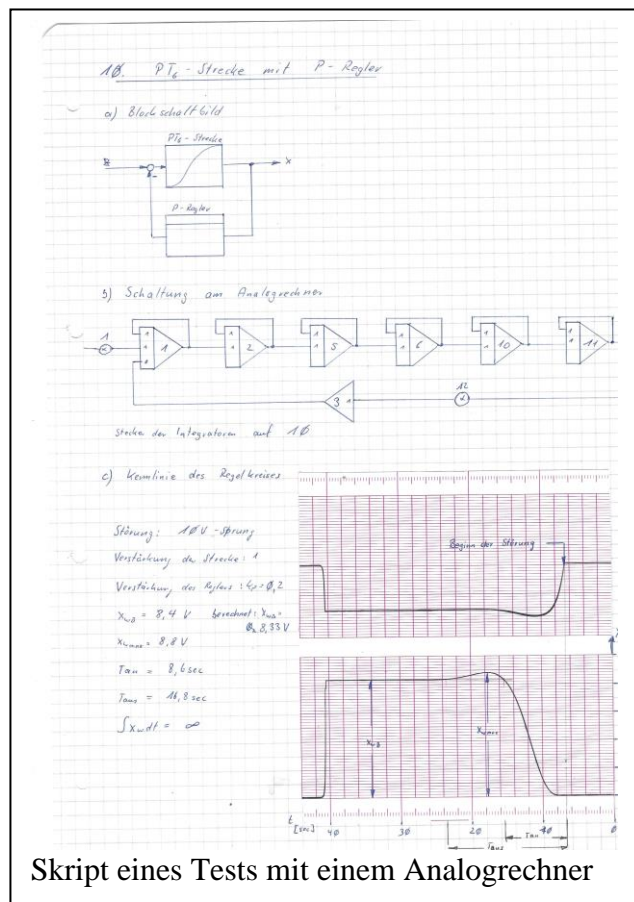 10. PT6 - Strecke mit P - Regler
a) Blockschaltbild
PT6 - Strecke
X
P - Regler
b) Schaltung am Analogrechner
1
1 2 5 6 10 11
3
12
Stecker der Integratoren auf 10
c) Kennlinie des Regelkreises
Störung: 10V - Sprung
Beginn der Störung
Verstärkung der Strecke: 1
Verstärkung des Reglers: kp = 0,2
XwB = 8,4 V berechnet: XwB = 8,33 V
Xwmax = 8,8 V
Tan = 8,6 sec
Taus = 16,8 sec
∫Xw dt = ∞
XwB
Xwmax
t [sec] 40 30 20 10 0
Tan
Taus
Skript eines Tests mit einem Analogrechner